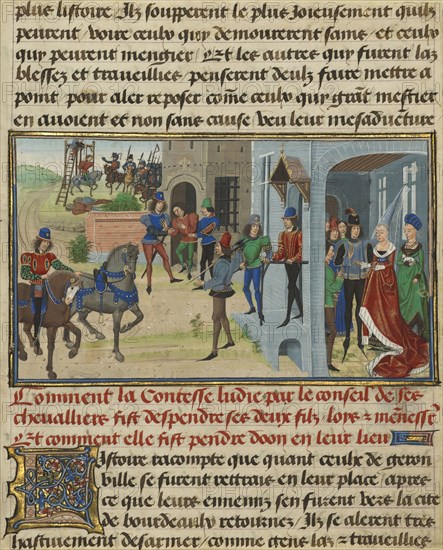 plus listoire. Ilz soupperent le plus Joieusement quilz
peurent / voire ceulx quy demourerent sains / et ceulx
quy peurent mengier / Et les autres quy furent la
blessez et travveillies / penserent deulz faire mettre a
point, pour aler reposer / co͂me ceulx quy gra͂t mestier
en avoient et non sans cause / veu leur mesaducture
Comment la Contesse ludie par le conseil de ses
chevalliers fist despendre ses deux filz loys &
Et comment elle fist pendre doon en leur lieu
Histoire racompte que quant ceulx de geron
ville se furent retrais en leur place / apres
ce que leurs ennemis sen furent vers la cite
de bourdeaulx retournez / Ilz se alerent tres
hastivement desarmer / comme gens las & travveillies